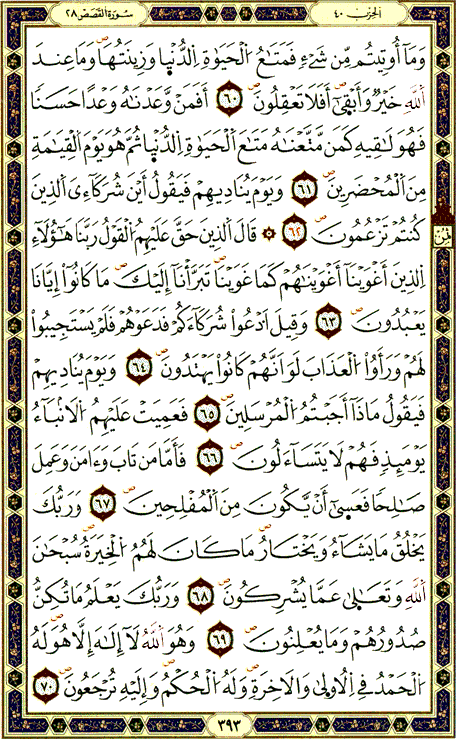 الحزب ٤٠
سورة القصص ٢٨
وَمَآ أُوتِيتُم مِّن شَيْءٍ فَمَتَٰعُ الْحَيَوٰةِ الدُّنْيَا وَزِينَتُهَا وَمَا عِندَ
اللَّهِ خَيْرٌ وَأَبْقَىٰٓ أَفَلَا تَعْقِلُونَ ٦٠ أَفَمَن وَعَدْنَٰهُ وَعْدًا حَسَنًا
فَهُوَ لَٰقِيهِ كَمَن مَّتَّعْنَٰهُ مَتَٰعَ الْحَيَوٰةِ الدُّنْيَا ثُمَّ هُوَ يَوْمَ الْقِيَٰمَةِ
مِنَ الْمُحْضَرِينَ ٦١ وَيَوْمَ يُنَادِيهِمْ فَيَقُولُ أَيْنَ شُرَكَآءِيَ الَّذِينَ
كُنتُمْ تَزْعُمُونَ ٦٢ قَالَ الَّذِينَ حَقَّ عَلَيْهِمُ الْقَوْلُ رَبَّنَا هَٰٓؤُلَآءِ
الَّذِينَ أَغْوَيْنَآ أَغْوَيْنَٰهُمْ كَمَا غَوَيْنَا تَبَرَّأْنَآ إِلَيْكَ مَا كَانُوٓا۟ إِيَّانَا
يَعْبُدُونَ ٦٣ وَقِيلَ ادْعُوا۟ شُرَكَآءَكُمْ فَدَعَوْهُمْ فَلَمْ يَسْتَجِيبُوا۟
لَهُمْ وَرَأَوُا۟ الْعَذَابَ لَوْ أَنَّهُمْ كَانُوا۟ يَهْتَدُونَ ٦٤ وَيَوْمَ يُنَادِيهِمْ
فَيَقُولُ مَاذَآ أَجَبْتُمُ الْمُرْسَلِينَ ٦٥ فَعَمِيَتْ عَلَيْهِمُ الْأَنۢبَآءُ
يَوْمَئِذٍ فَهُمْ لَا يَتَسَآءَلُونَ ٦٦ فَأَمَّا مَن تَابَ وَءَامَنَ وَعَمِلَ
صَٰلِحًا فَعَسَىٰٓ أَن يَكُونَ مِنَ الْمُفْلِحِينَ ٦٧ وَرَبُّكَ
يَخْلُقُ مَا يَشَآءُ وَيَخْتَارُ مَا كَانَ لَهُمُ الْخِيَرَةُ سُبْحَٰنَ
اللَّهِ وَتَعَٰلَىٰ عَمَّا يُشْرِكُونَ ٦٨ وَرَبُّكَ يَعْلَمُ مَا تُكِنُّ
صُدُورُهُمْ وَمَا يُعْلِنُونَ ٦٩ وَهُوَ اللَّهُ لَآ إِلَٰهَ إِلَّا هُوَ لَهُ
الْحَمْدُ فِي الْأُولَىٰ وَالْءَاخِرَةِ وَلَهُ الْحُكْمُ وَإِلَيْهِ تُرْجَعُونَ ٧٠
٣٩٣